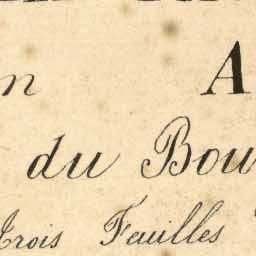 n A
du Bou
Trois Feuilles